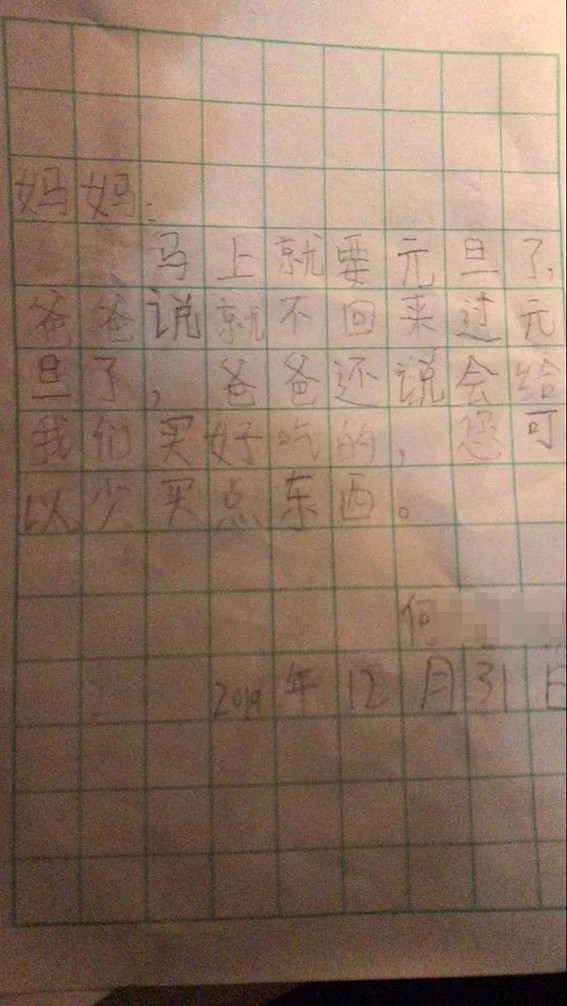 妈妈：
马上就要元旦了，
爸爸说就不回来过元
旦了，爸爸还说会给
我们买好吃的，您可
以少买点东西。
何
2019年12月31日